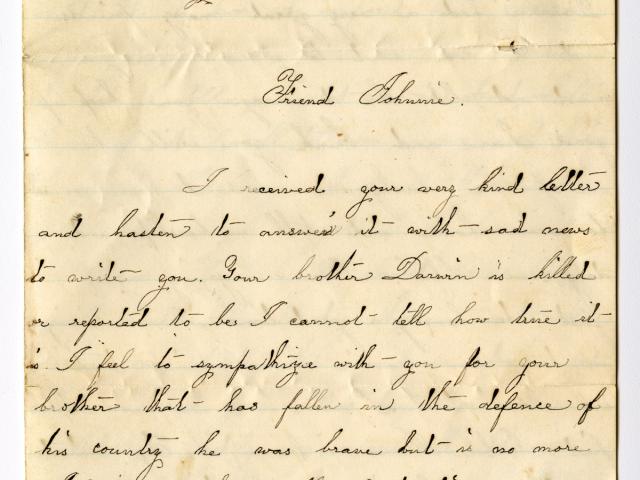 Friend Johnnie.
I received your very kind letter
and hasten to answer it with sad news
to write you. Your brother Darwin is killed
or reported to be I cannot tell how true it
is. I feel to sympathize with you for your
brother that has fallen in the defence of
his country he was brave but is no more